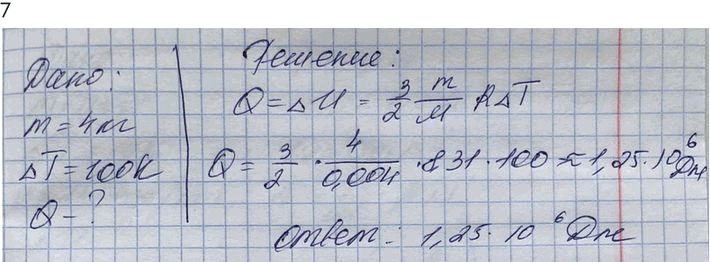 7
Дано:
m = 4 кг
ΔT = 100К
Q - ?
Решение:
Q = ΔU = 3/2 m/M RΔT
Q = 3/2 · 4/0,004 · 8,31 · 100 ≈ 1,25 · 10⁶ Дж
Ответ: 1,25 · 10⁶ Дж